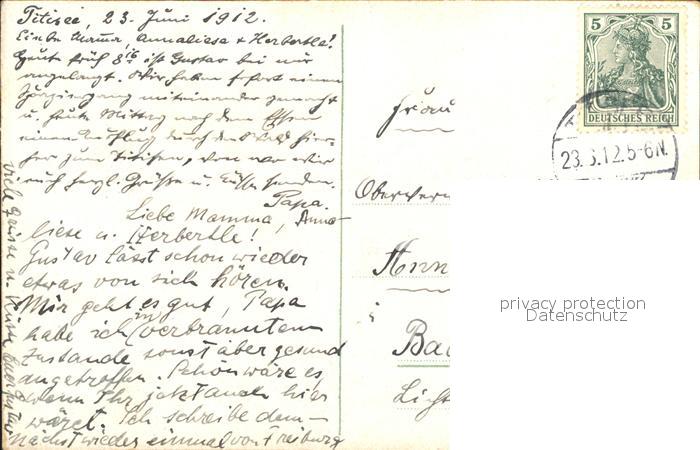 Titisee, 23. Juni 1912.
Liebe Mama, Annaliesa + Herbertle!
Heute früh 8 16 ist Gustav bei mir
angelangt. Wir haben sofort einen
miteinander gemacht
u. heute Mittag nach dem Essen
einen Ausflug durch den Wald hier-
her zum Titisee, von wo wir
Euch herzl. Grüsse u. Küsse senden.
Papa.
Liebe Mamma, Anna-
liese u. Herbertle!
Gustav lässt schon wieder
etwas von sich hören.
Mir geht es gut, Papa
habe ich im verbrannten
Zustande sonst aber gesund
angetroffen. Schön wäre es,
wenn Ihr jetzt auch hier
wäret. Ich schreibe dem-
nächst wieder einmal von Freiburg
Viele Grüsse u. Küsse Euer Gustav
Frau
5 5
DEUTSCHES REICH
23.6.12.5-6N.
Oberver
Ann
Ba
Licht
privacy protection
Datenschutz